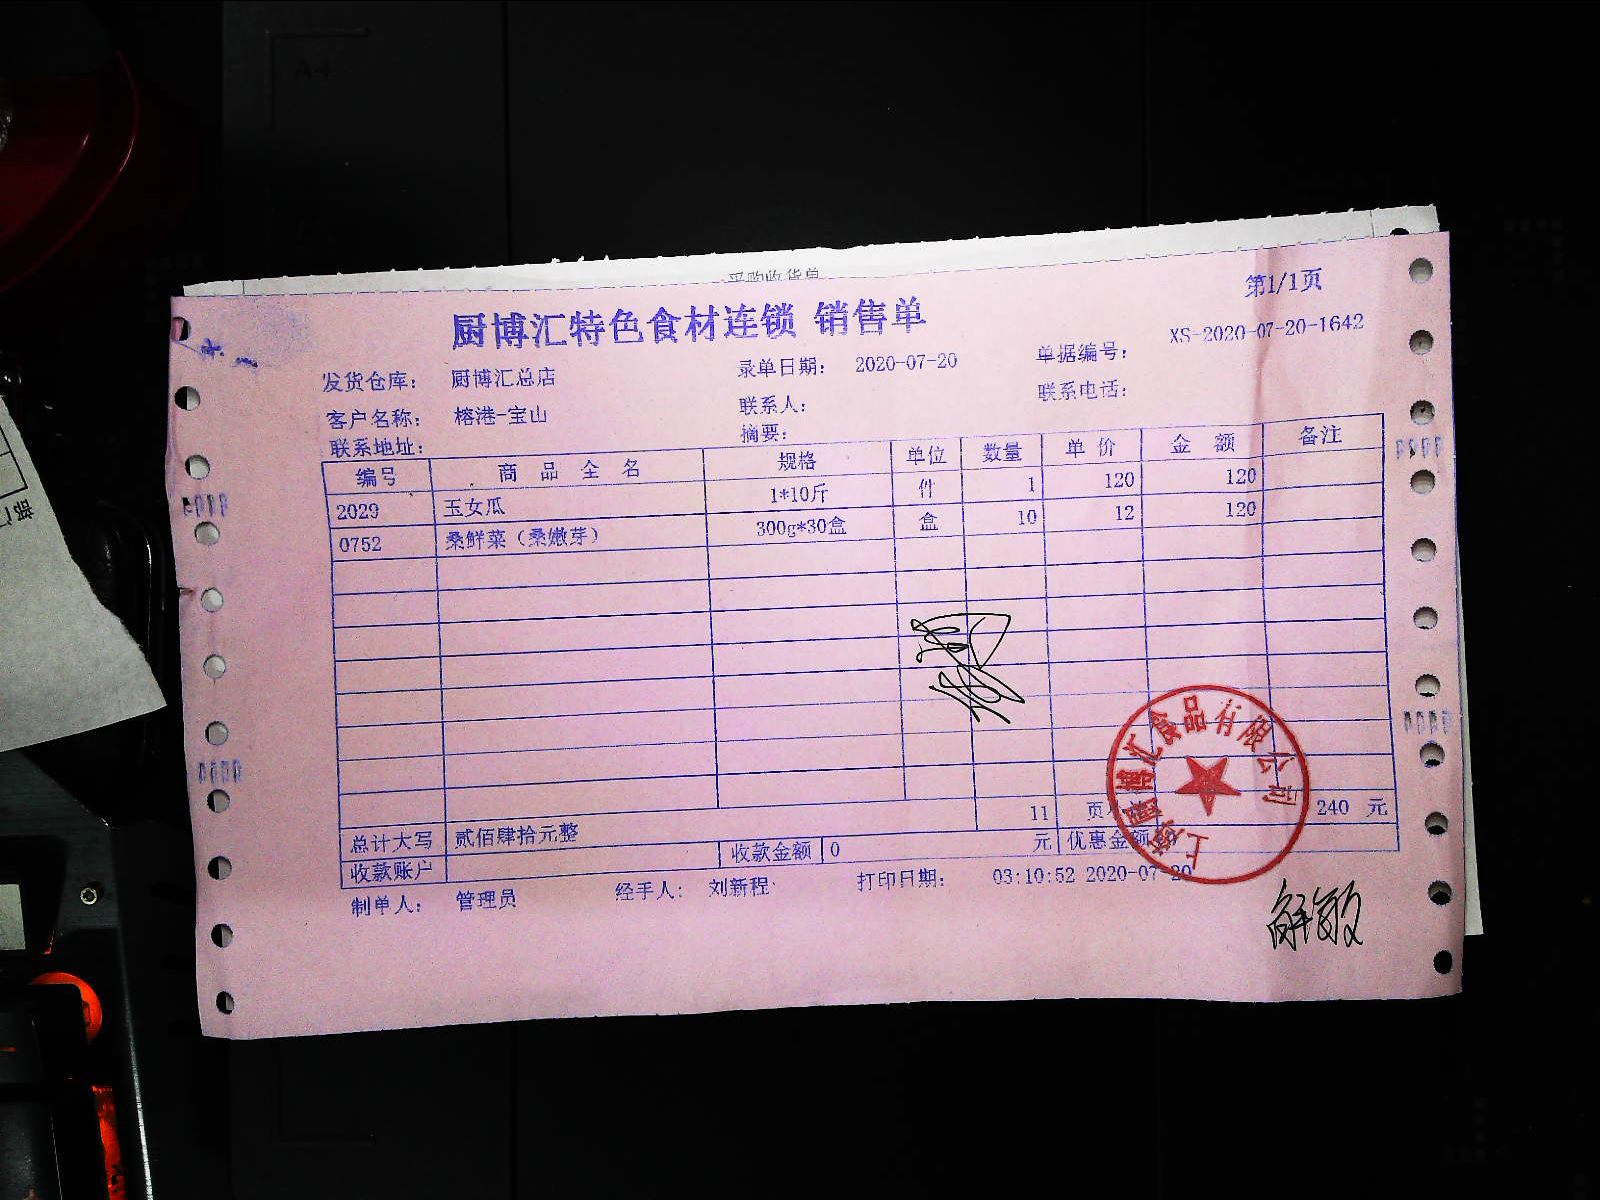 A4
采购收货单
第1/1页
厨博汇特色食材连锁 销售单
发货仓库： 厨博汇总店 录单日期： 2020-07-20 单据编号： XS-2020-07-20-1642
客户名称： 榕港-宝山 联系人： 联系电话：
联系地址： 摘要：
编号 商品全名 规格 单位 数量 单价 金额 备注
2029 玉女瓜 1*10斤 件 1 120 120
0752 桑鲜菜（桑嫩芽） 300g*30盒 盒 10 12 120
11 240 元
总计大写 贰佰肆拾元整
收款账户 收款金额 0 元 优惠金额
制单人： 管理员 经手人： 刘新程 打印日期： 03:10:52 2020-07-20
上海厨博汇食品有限公司